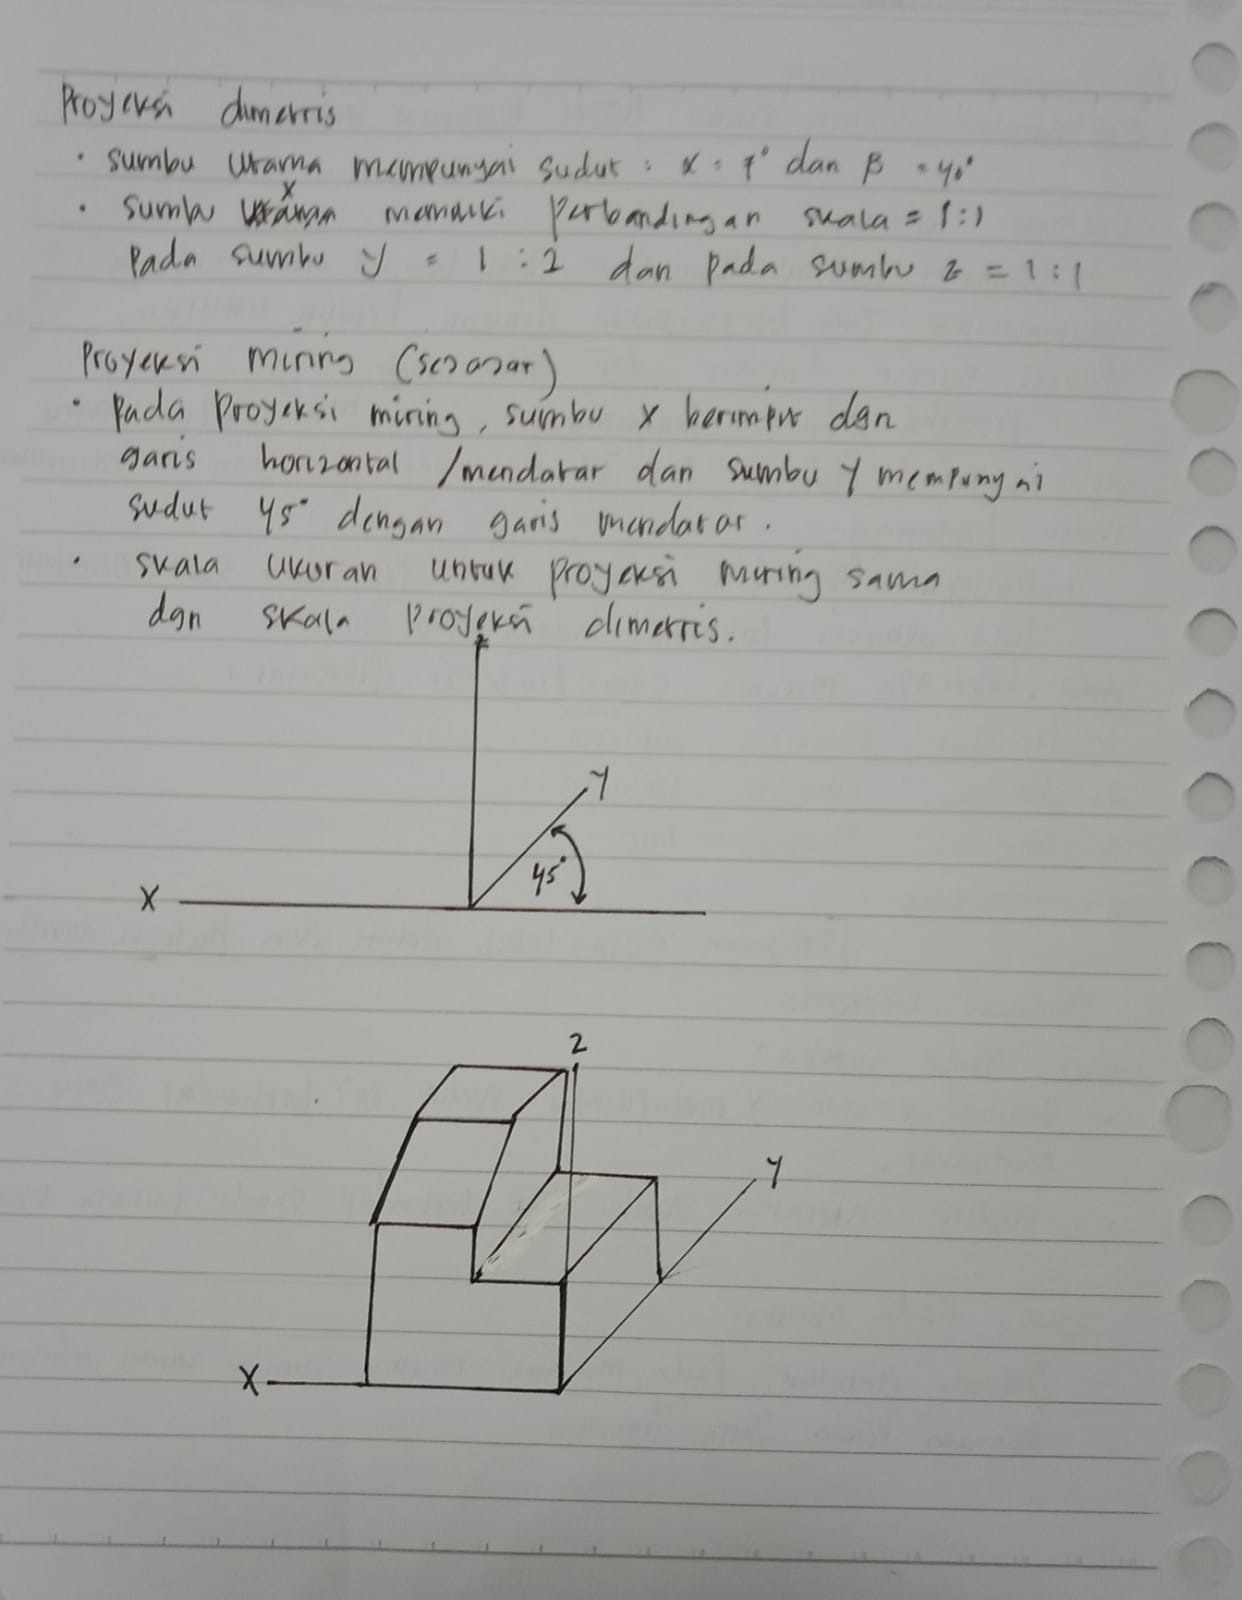 Proyeksi dimetris
• sumbu utama mempunyai sudut : α = 7° dan β = 40°
• sumbu x memiliki perbandingan skala = 1:1
Pada sumbu y = 1 : 2 dan pada sumbu z = 1 : 1
Proyeksi miring (sejajar)
• Pada proyeksi miring, sumbu x berimpit dgn
garis horizontal /mendatar dan sumbu y mempunyai
sudut 45° dengan garis mendatar.
• skala ukuran untuk proyeksi miring sama
dgn skala proyeksi dimetris.
z
Y
45°
X
Z
Y
X